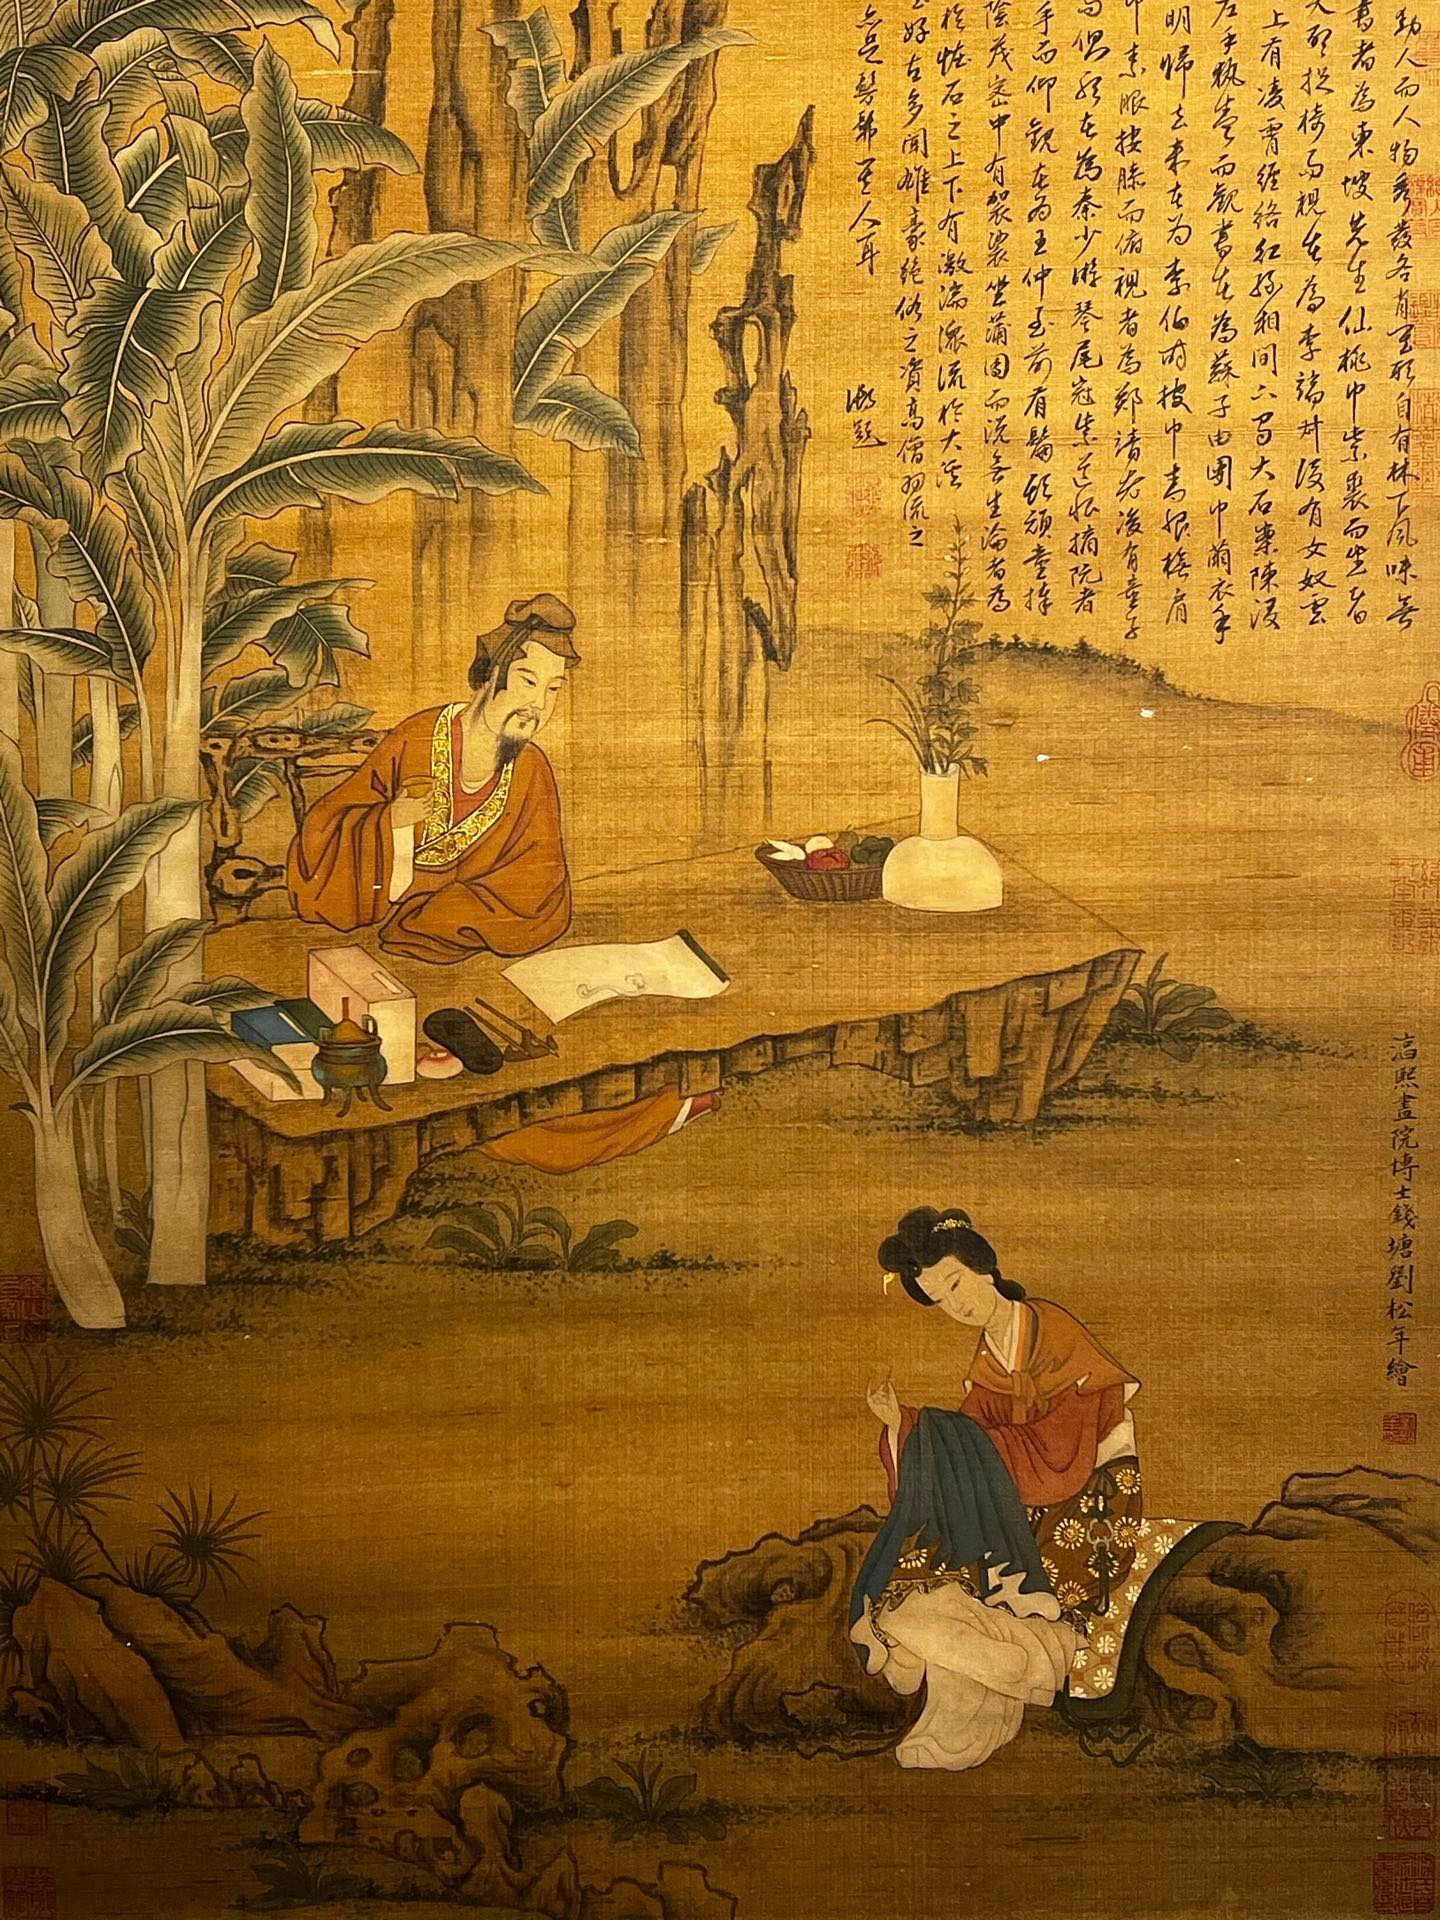 動人而人物秀發各肖其形自有林下風味無
書者為東坡先生仙桃巾紫裘而坐者
捉椅而視者為李端叔後有女奴雲
上有凌霄纏絡紅綠相間下有大石案陳設
左手執卷而觀書者為蘇子由團巾繭衣手
明歸去來者為李伯時披巾青服撫肩
巾素服按膝而俯視者為鄭靖老後有童子
而側聽者為秦少游琴尾冠紫道服摘阮者
手而仰觀者為王仲至前有鬅頭頑童捧
陰茂密中有袈裟坐蒲團而說無生論者為
於怪石之上下有激湍潀流於大溪
好古多聞雄豪絕俗之資高僧羽流之
亦足髣髴其人耳
題
淳熙畫院博士錢塘劉松年繪